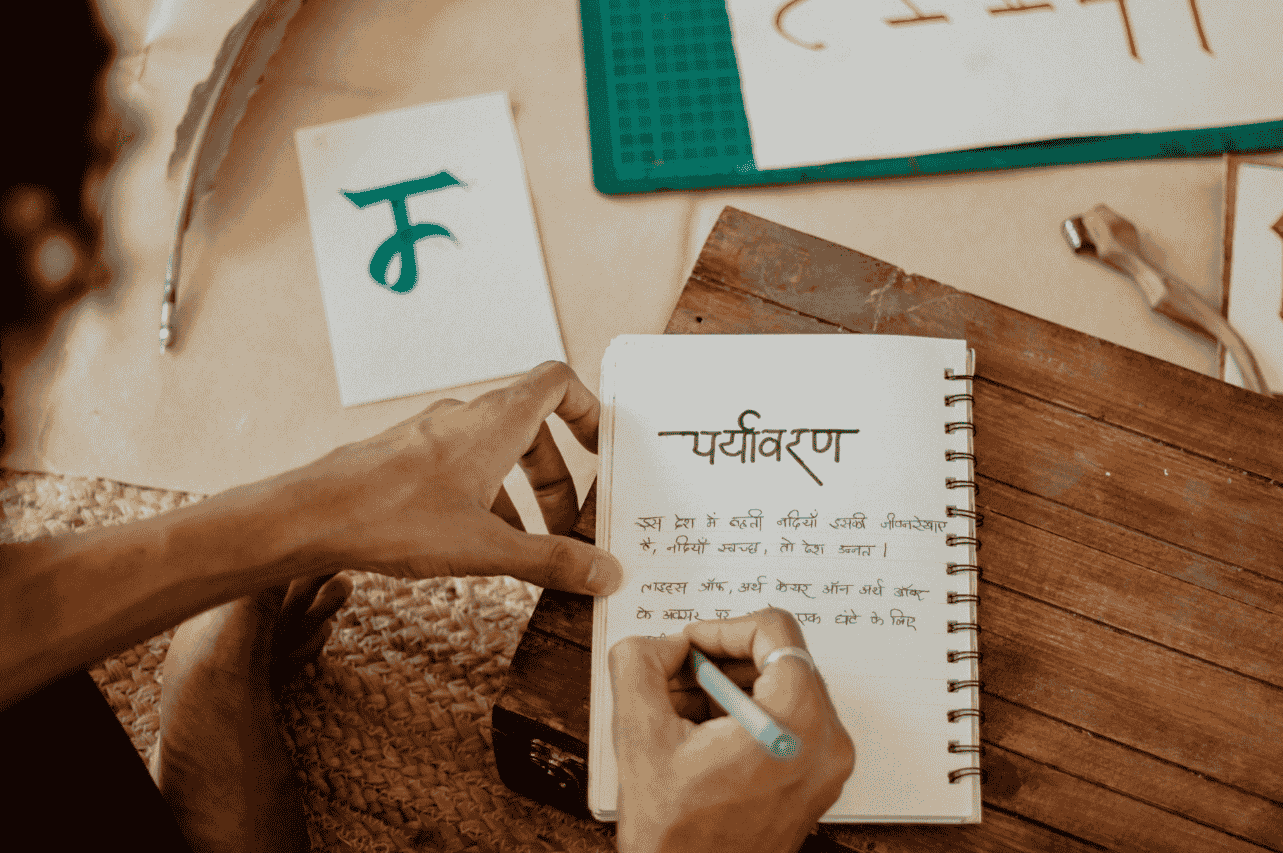 पर्यावरण
इस देश में बहती नदियाँ इसकी जीवनरेखाएं
है, नदियाँ स्वच्छ, तो देश उन्नत।
लाइट्स ऑफ, अर्थ केयर ऑन अर्थ ऑवर
के अवसर पर एक घंटे के लिए